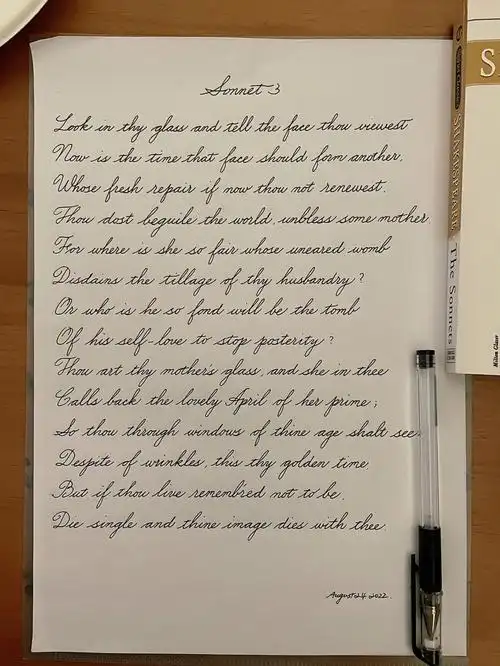 Sonnet 3
Look in thy glass and tell the face thou viewest
Now is the time that face should form another,
Whose fresh repair if now thou not renewest.
Thou dost beguile the world, unbless some mother.
For where is she so fair whose uneared womb
Disdains the tillage of thy husbandry?
Or who is he so fond will be the tomb
Of his self-love to stop posterity?
Thou art thy mother's glass, and she in thee
Calls back the lovely April of her prime;
So thou through windows of thine age shalt see
Despite of wrinkles, this thy golden time.
But if thou live remembred not to be,
Die single and thine image dies with thee.
August 24 2022.
SHAKESPEARE
The Sonnets
S
Milton Glaser